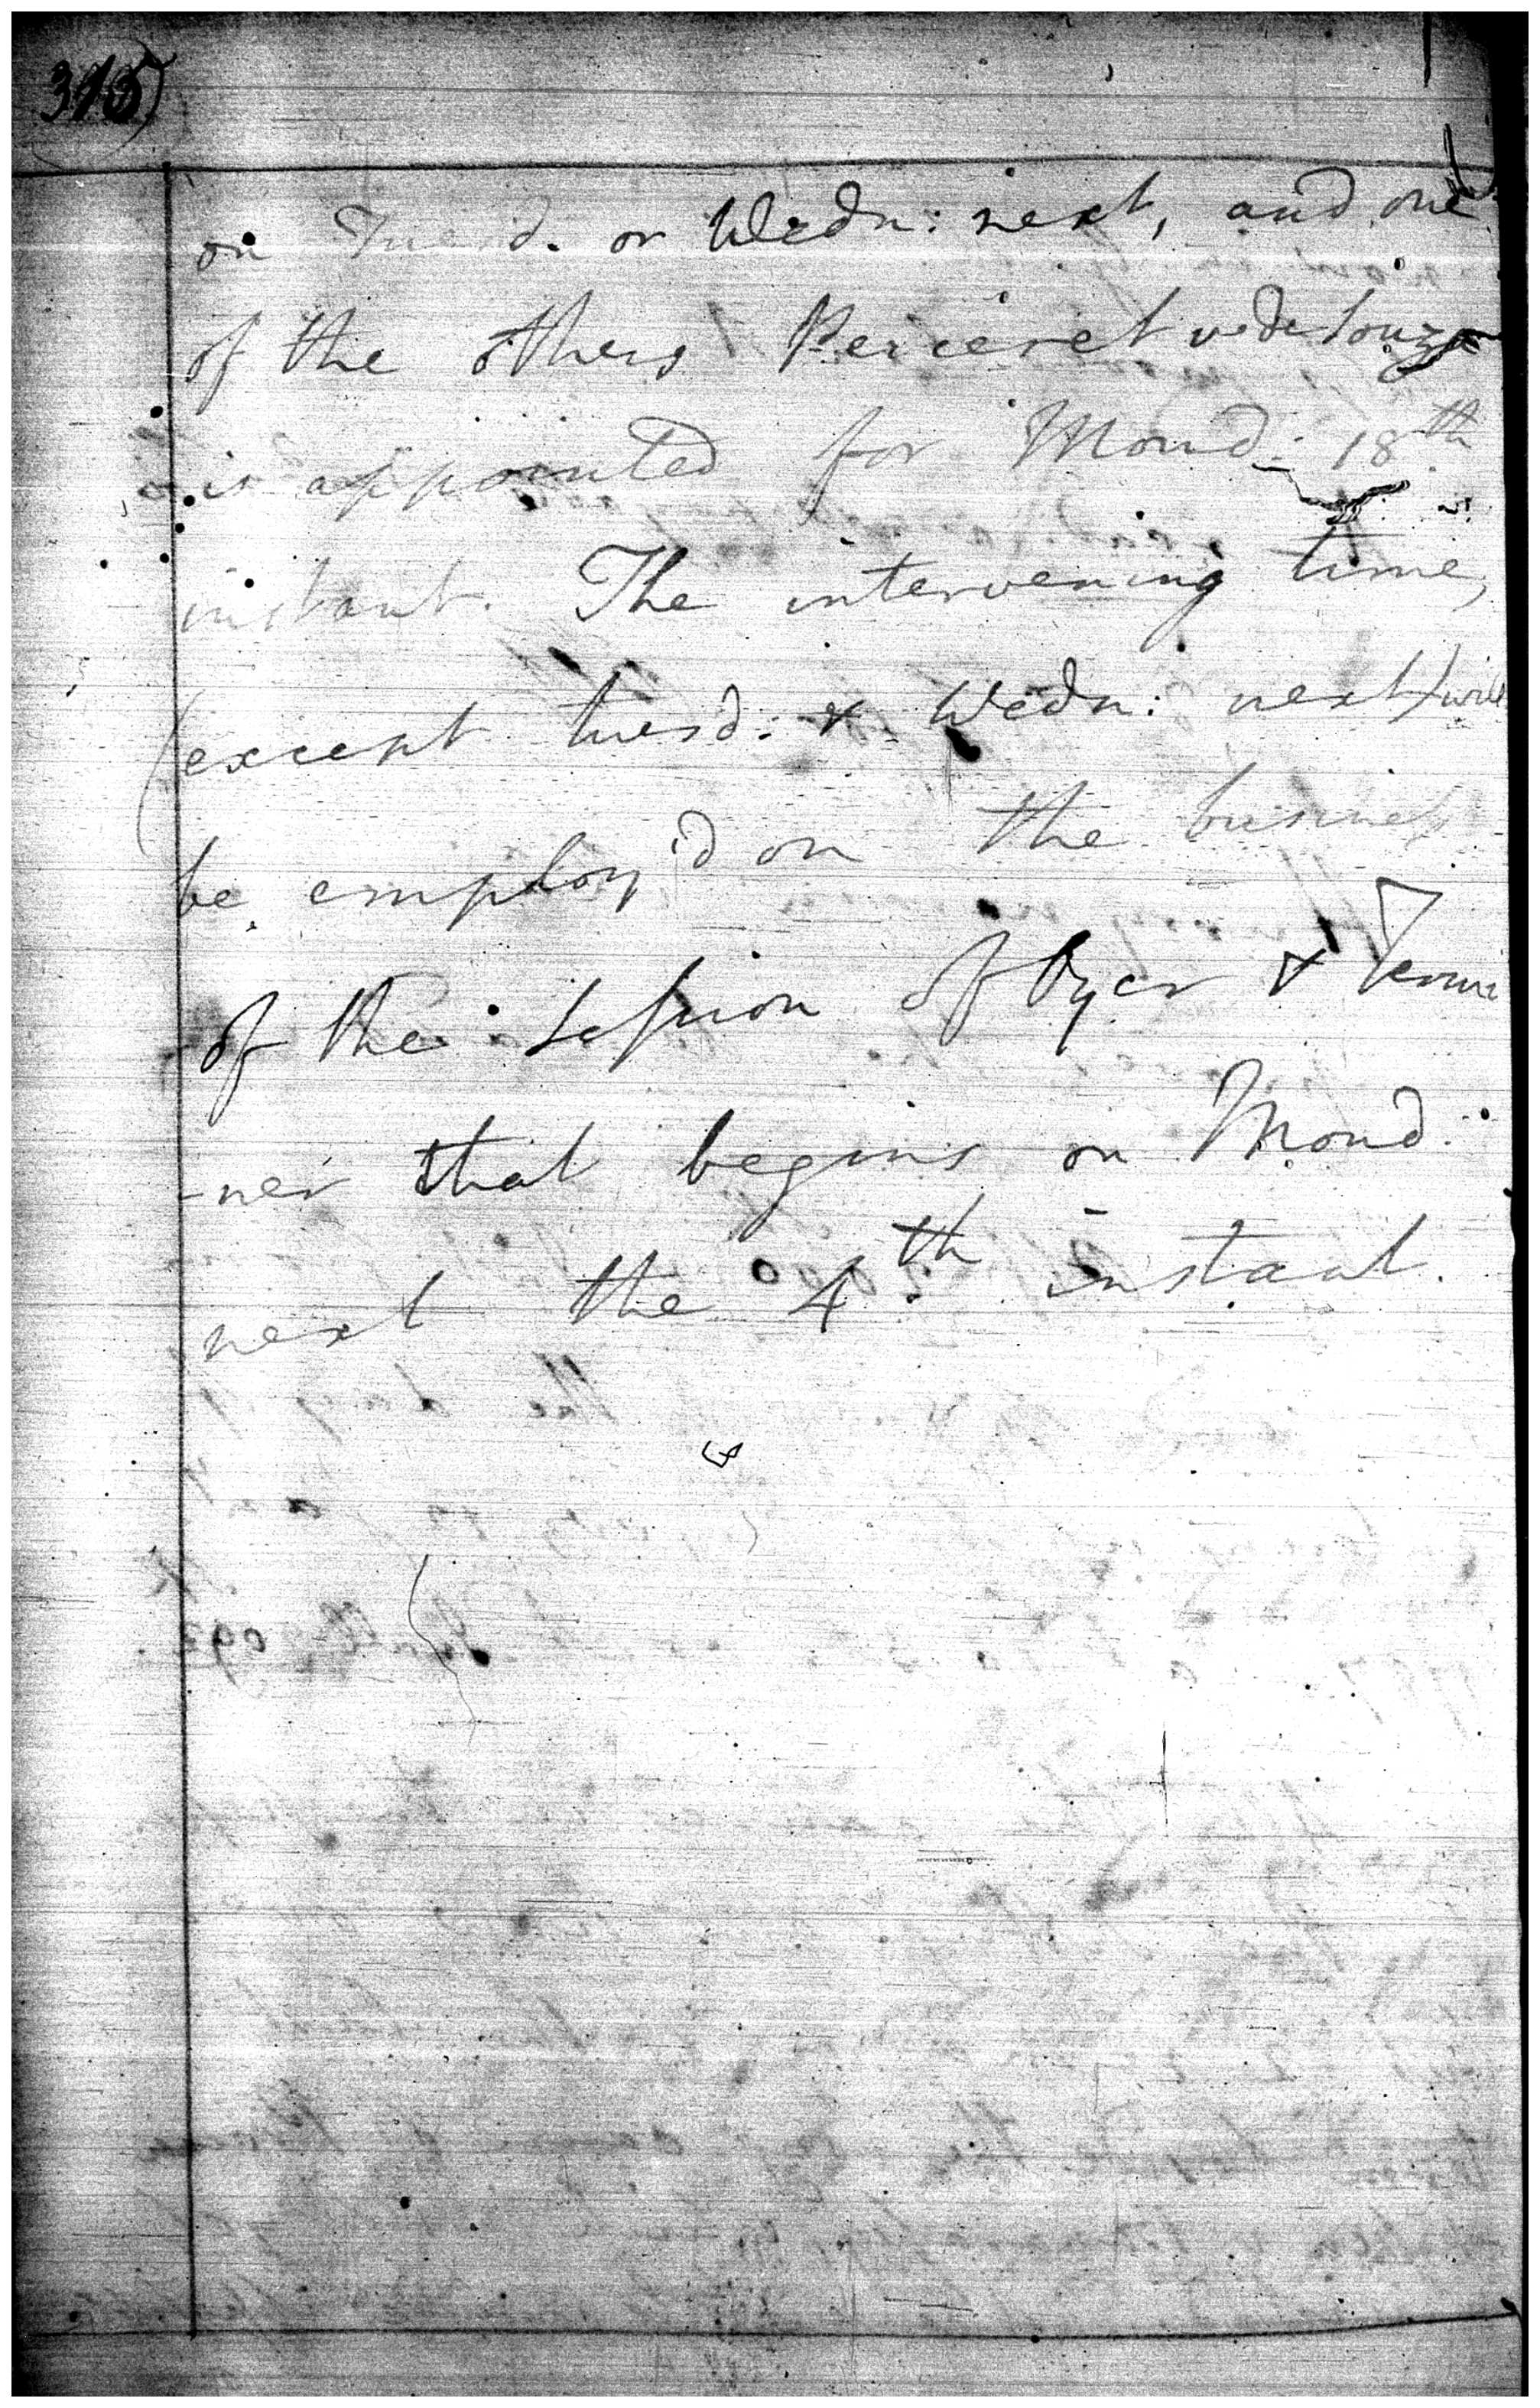 on Tuesd. or Wedn: next, and one
of the others Perceret v de
is appointed for Mond: 18th
instant. The intervening time,
(except tuesd: & Wedn: next) will
be employ'd on the business
of the session of Oyer & Termi
-ner that begins on Mond:
next the 4th instant.